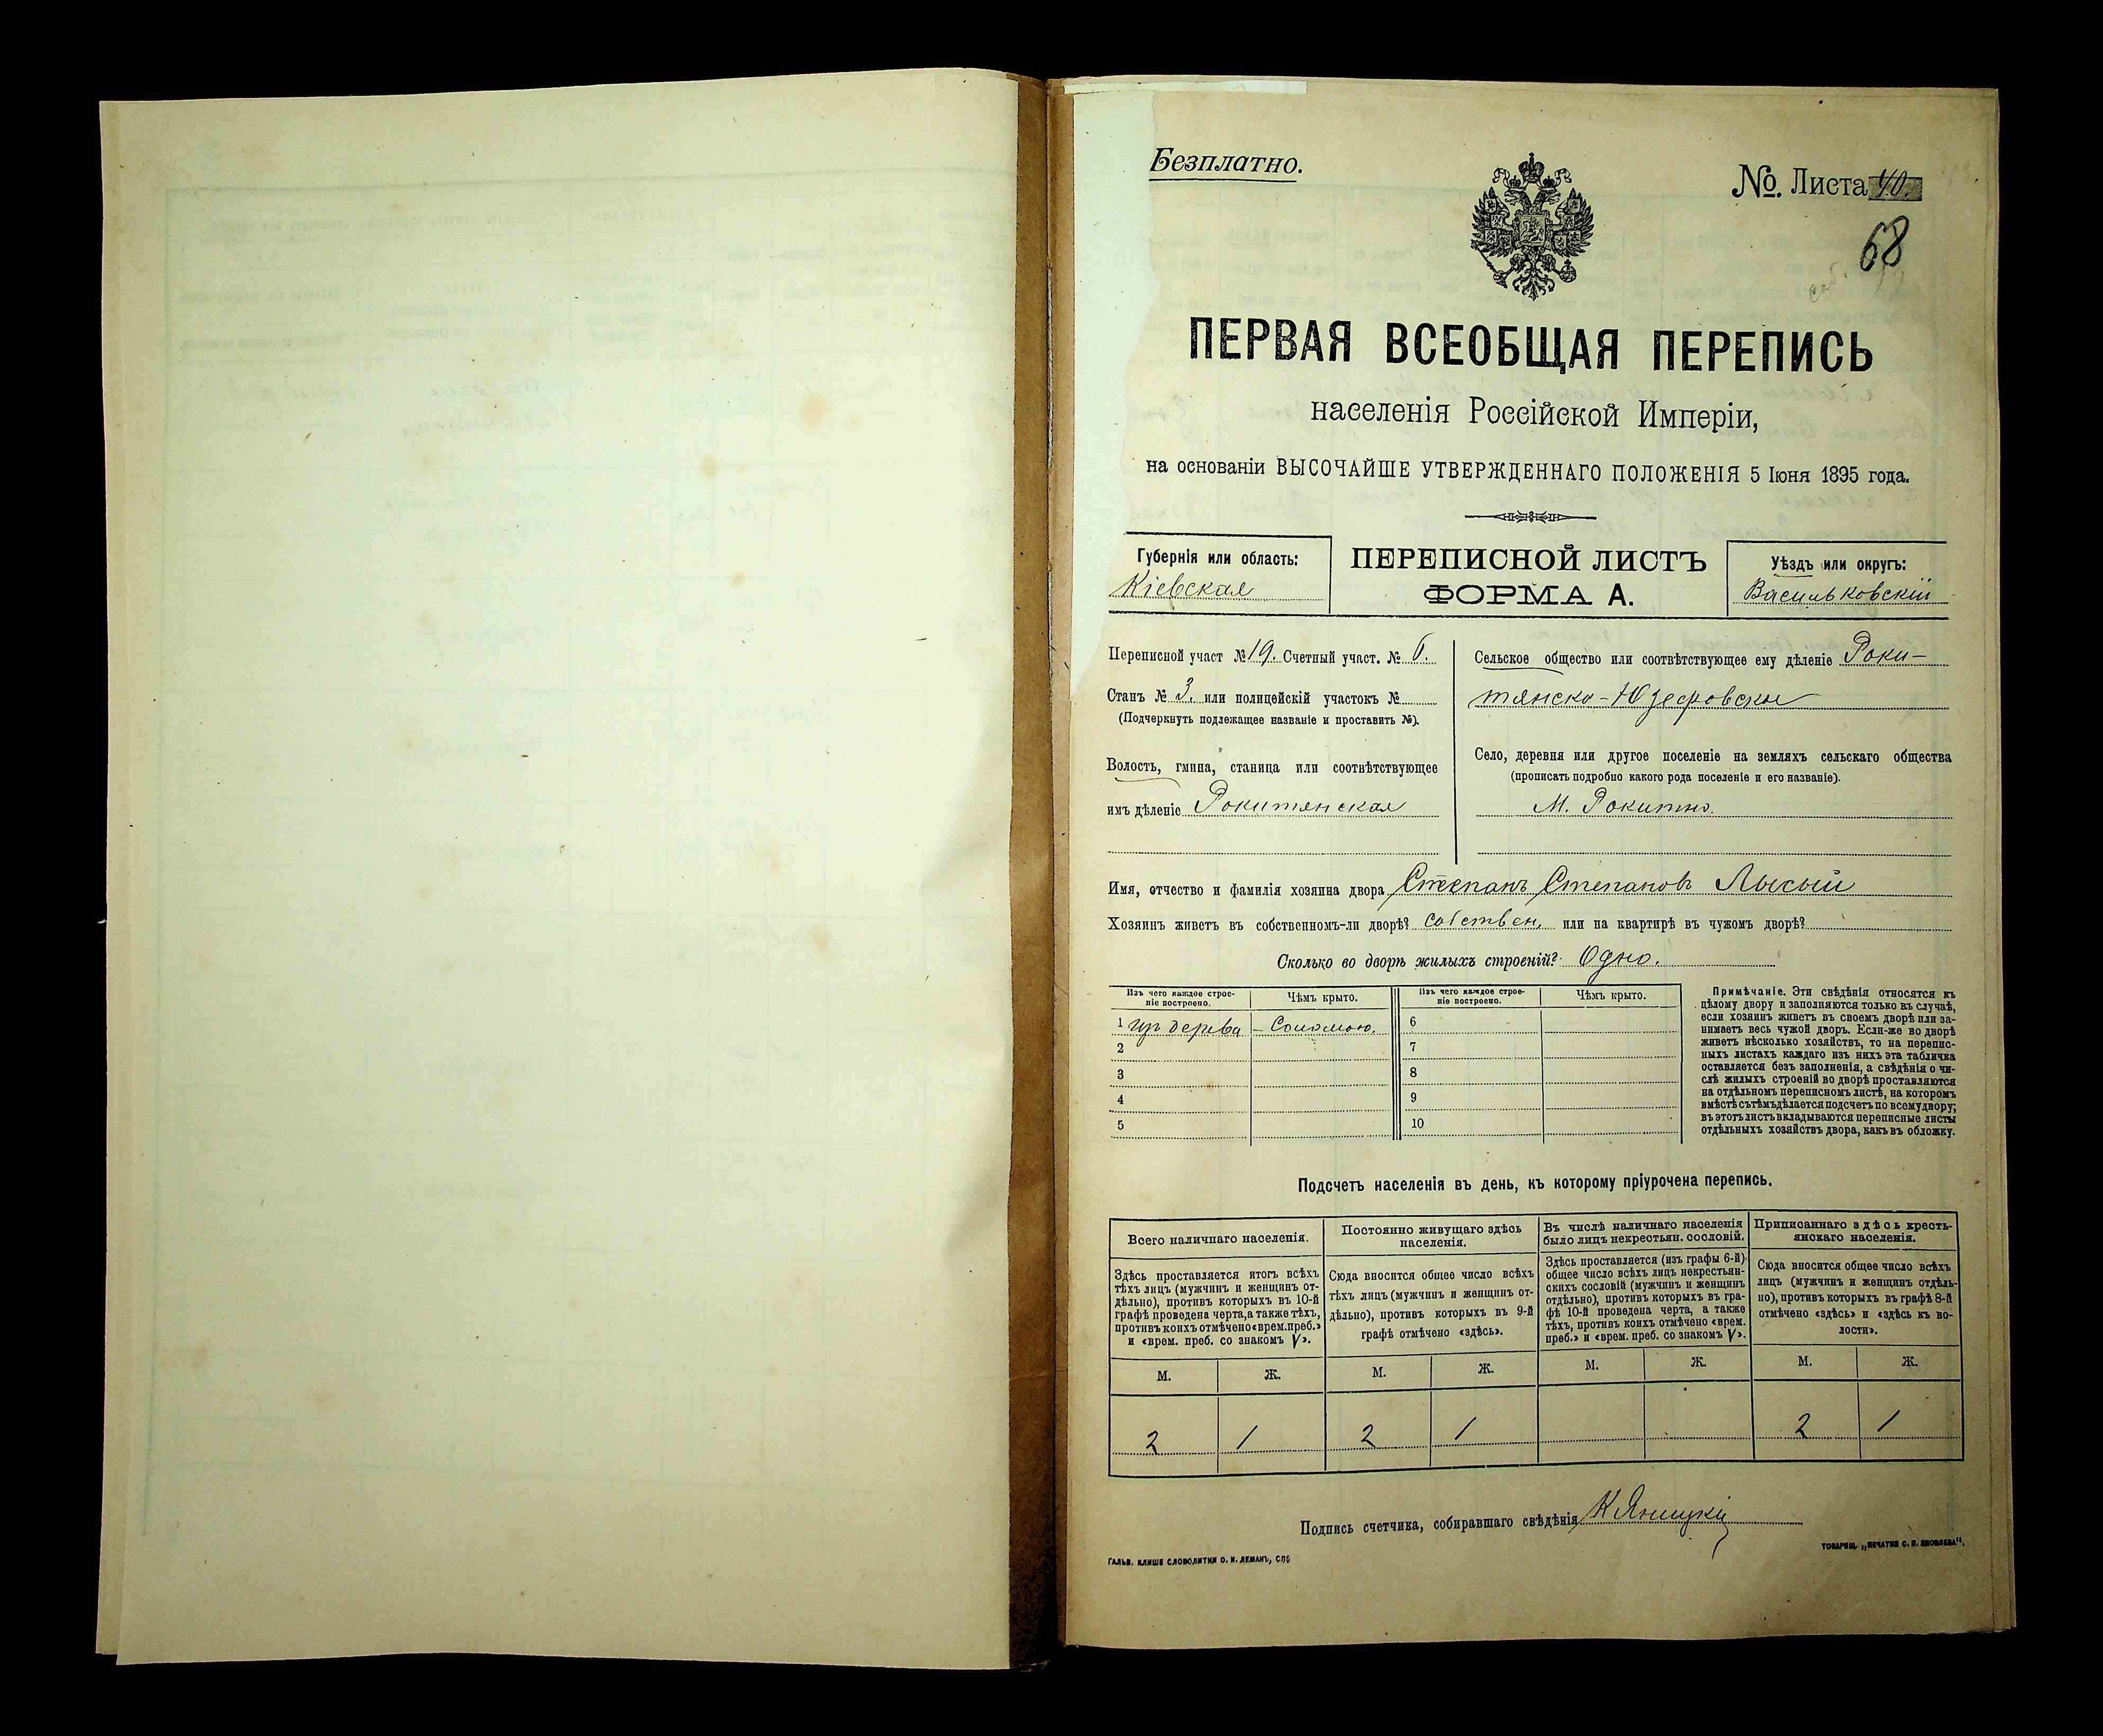 Безплатно.
№. Листа 40.
68
ПЕРВАЯ ВСЕОБЩАЯ ПЕРЕПИСЬ
населенія Россійской Имперіи,
на основаніи ВЫСОЧАЙШЕ УТВЕРЖДЕННАГО ПОЛОЖЕНІЯ 5 Іюня 1895 года.
Губернія или область:
Кіевская
ПЕРЕПИСНОЙ ЛИСТЪ
ФОРМА А.
Уѣздъ или округъ:
Васильковскій
Переписной участ №19. Счетный участ. № 6.
Станъ № 3. или полицейскій участокъ №
(Подчеркнуть подлежащее названіе и проставить №).
Волость, гмина, станица или соотвѣтствующее
имъ дѣленіе Рокитянская
Сельское общество или соотвѣтствующее ему дѣленіе Роки-
тянско-Юзефовское
Село, деревня или другое поселеніе на земляхъ сельскаго общества
(прописать подробно какого рода поселеніе и его названіе).
М. Рокитно.
Имя, отчество и фамилія хозяина двора Степанъ Степановъ Лысый
Хозяинъ живетъ въ собственномъ-ли дворѣ? собствен, или на квартирѣ въ чужомъ дворѣ?
Сколько во дворѣ жилыхъ строеній? Одно.
Изъ чего каждое строе-
ніе построено.
Чѣмъ крыто.
Изъ чего каждое строе-
ніе построено.
Чѣмъ крыто.
1 изъ дерева – Соломою. 6
2 7
3 8
4 9
5 10
Примѣчаніе. Эти свѣдѣнія относятся къ
цѣлому двору и заполняются только въ случаѣ,
если хозяинъ живетъ въ своемъ дворѣ или за-
нимаетъ весь чужой дворъ. Если-же во дворѣ
живетъ нѣсколько хозяйствъ, то на перепис-
ныхъ листахъ каждаго изъ нихъ эта табличка
оставляется безъ заполненія, а свѣдѣнія о чи-
слѣ жилыхъ строеній во дворѣ проставляются
на отдѣльномъ переписномъ листѣ, на которомъ
вмѣстѣ съ тѣмъ дѣлается подсчетъ по всему двору;
въ этотъ листъ вкладываются переписные листы
отдѣльныхъ хозяйствъ двора, какъ въ обложку.
Подсчетъ населенія въ день, къ которому пріурочена перепись.
Всего наличнаго населенія.
Здѣсь проставляется итогъ всѣхъ
тѣхъ лицъ (мужчинъ и женщинъ от-
дѣльно), противъ которыхъ въ 10-й
графѣ проведена черта, а также тѣхъ,
противъ коихъ отмѣчено «врем. преб.»
и «врем. преб. со знакомъ V».
Постоянно живущаго здѣсь
населенія.
Сюда вносится общее число всѣхъ
тѣхъ лицъ (мужчинъ и женщинъ от-
дѣльно), противъ которыхъ въ 9-й
графѣ отмѣчено «здѣсь».
Въ числѣ наличнаго населенія
было лицъ некрестьян. сословій.
Здѣсь проставляется (изъ графы 6-й)
общее число всѣхъ лицъ некрестьян-
скихъ сословій (мужчинъ и женщинъ
отдѣльно), противъ которыхъ въ гра-
фѣ 10-й проведена черта, а также
тѣхъ, противъ коихъ отмѣчено «врем.
преб.» и «врем. преб. со знакомъ V».
Приписаннаго здѣсь кресть-
янскаго населенія.
Сюда вносится общее число всѣхъ
лицъ (мужчинъ и женщинъ отдѣль-
но), противъ которыхъ въ графѣ 8-й
отмѣчено «здѣсь» и «здѣсь къ во-
лости».
М. Ж. М. Ж. М. Ж. М. Ж.
2 1 2 1 2 1
Подпись счетчика, собиравшаго свѣдѣнія К Яницкій
ГАЛЬВ. КЛИШЕ СЛОВОЛИТНИ О. И. ЛЕМАНЪ, СПБ
ТОВАРИЩ. „ПЕЧАТНЯ С. П. ЯКОВЛЕВА".